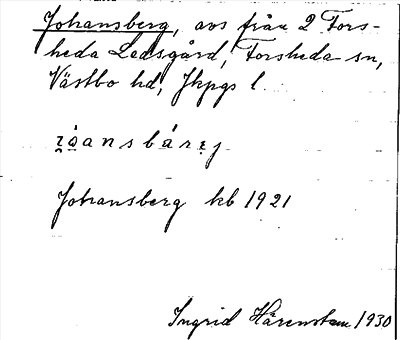 Johansberg, avs från 2 Fors-
heda Ledsgård, Forsheda sn,
Västbo hd, Jkpgs l.
Johansberg kb 1921
Ingrid Härenstam 1930